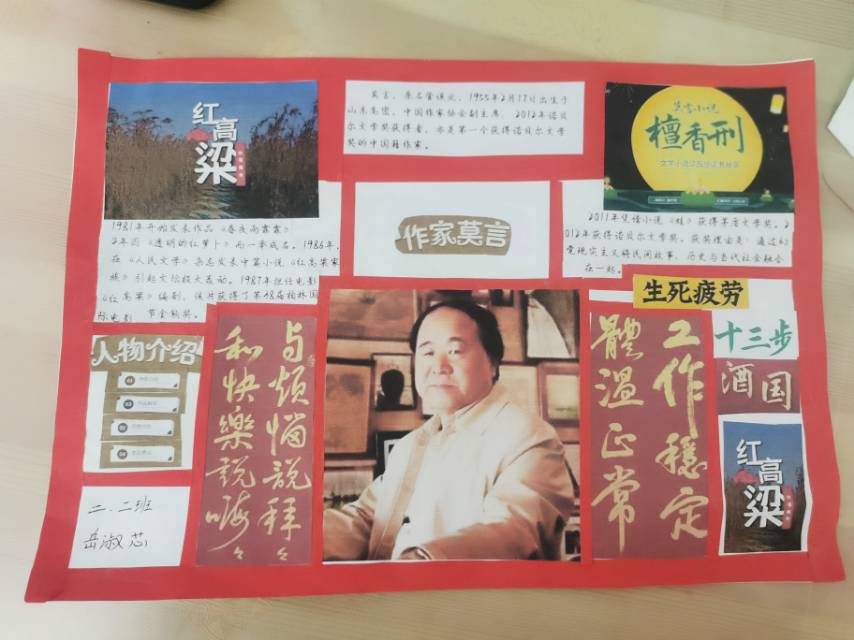 红高粱
莫言，原名管谟业，1955年2月17日出生于
山东高密，中国作家协会副主席，2012年诺贝
尔文学奖获得者，亦是第一个获得诺贝尔文学
奖的中国籍作家。
莫言小说
檀香刑
1981年开始发表作品《春夜雨霏霏》
2年因《透明的红萝卜》而一举成名。1986年，
在《人民文学》杂志发表中篇小说《红高粱家
族》引起文坛极大轰动。1987年担任电影
《红高粱》编剧，该片获得了第38届柏林国
际电影节金熊奖。
作家莫言
2011年凭借小说《蛙》获得茅盾文学奖。2
012年获得诺贝尔文学奖。获奖理由是：通过幻
觉现实主义将民间故事、历史与当代社会融合
在一起。
生死疲劳
人物介绍
01
02
03
04
与烦恼说拜々
和快樂説嗨々
工作穩定
體温正常
十三步
酒国
红高粱
二.二班
岳淑芯